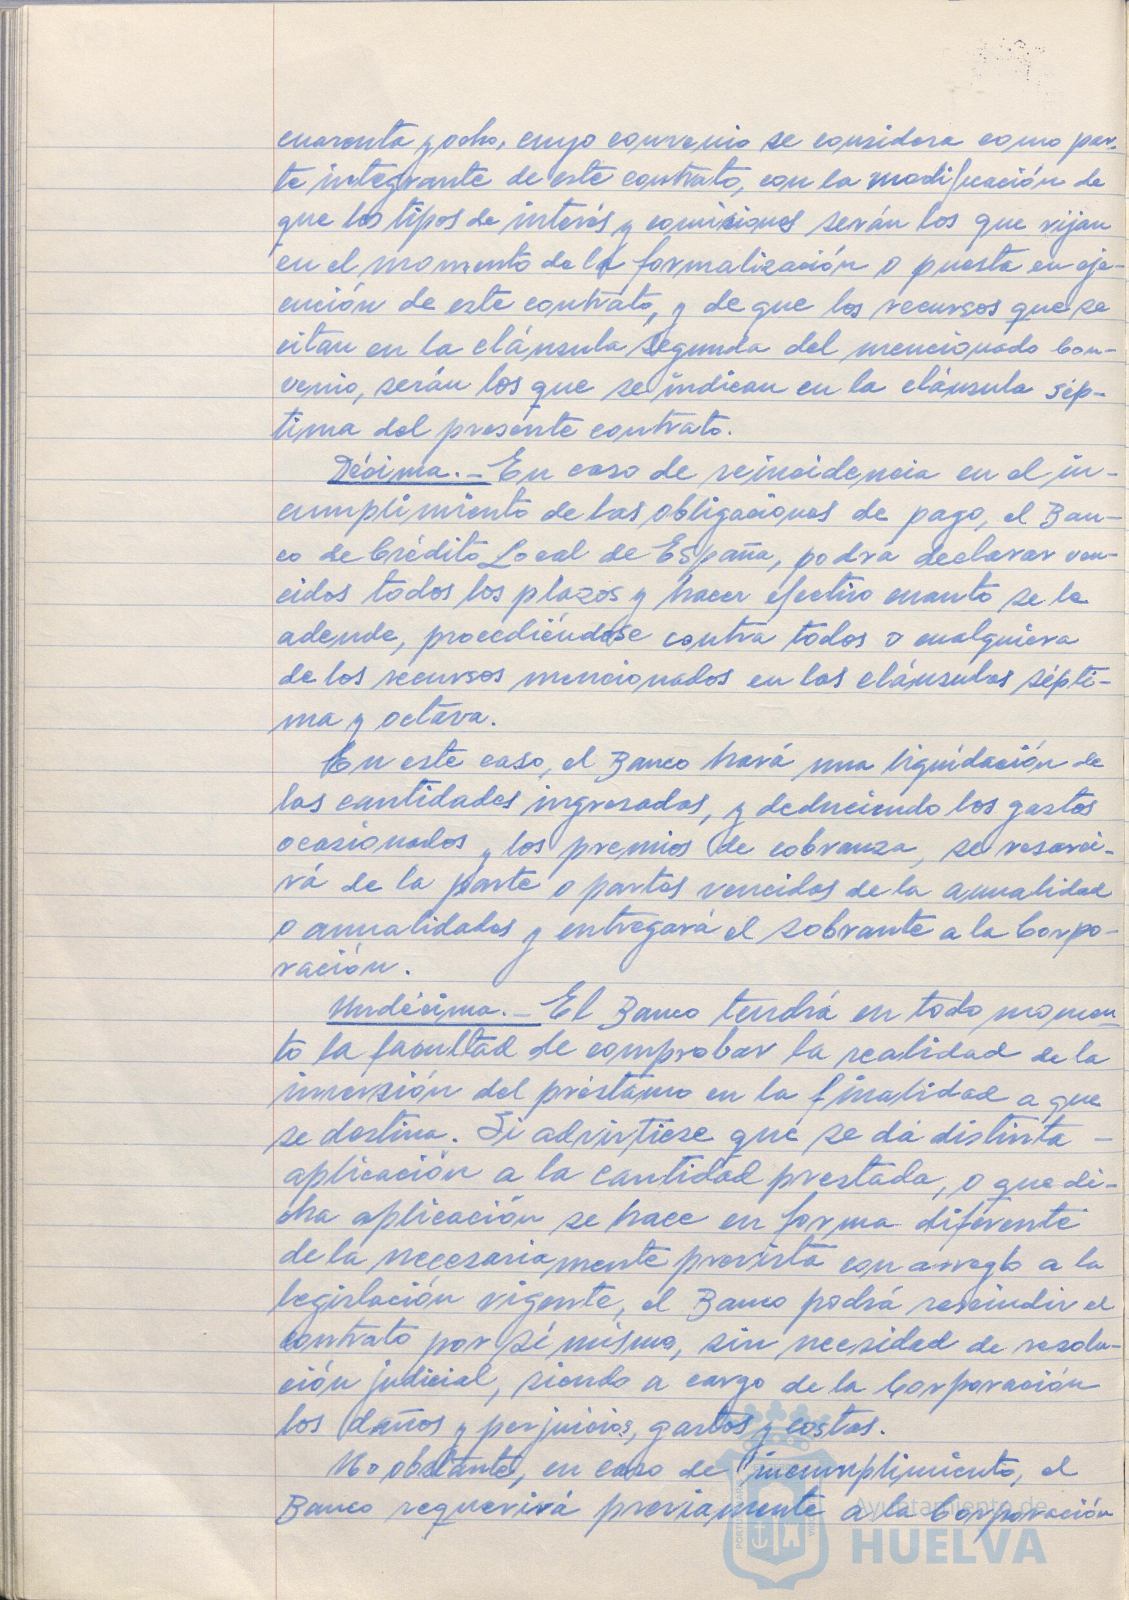 cuarenta y ocho, cuyo convenio se considera como par-
te integrante de este contrato, con la modificación de
que los tipos de interés y comisiones serán los que rijan
en el momento de la formalización o puesta en eje-
cución de este contrato, y de que los recursos que se
citan en la cláusula segunda del mencionado Con-
venio, serán los que se indican en la cláusula sép-
tima del presente contrato.
Décima.- En caso de reincidencia en el in-
cumplimiento de las obligaciones de pago, el Ban-
co de Crédito Local de España, podrá declarar ven-
cidos todos los plazos y hacer efectivo cuanto se le
adeude, procediéndose contra todos o cualquiera
de los recursos mencionados en las cláusulas sépti-
ma y octava.
En este caso, el Banco hará una liquidación de
las cantidades ingresadas, y deduciendo los gastos
ocasionados y los premios de cobranza, se resarci-
rá de la parte o partes vencidas de la anualidad
o anualidades y entregará el sobrante a la Corpo-
ración.
Undécima.- El Banco tendrá en todo momen-
to la facultad de comprobar la realidad de la
inversión del préstamo en la finalidad a que
se destina. Si advirtiese que se da distinta -
aplicación a la cantidad prestada, o que di-
cha aplicación se hace en forma diferente
de la necesariamente prevista con arreglo a la
legislación vigente, el Banco podrá rescindir el
contrato por sí mismo, sin necesidad de resolu-
ción judicial, siendo a cargo de la Corporación
los daños y perjuicios, gastos y costas.
No obstante, en caso de incumplimiento, el
Banco requerirá previamente a la Corporación
Ayuntamiento de
HUELVA